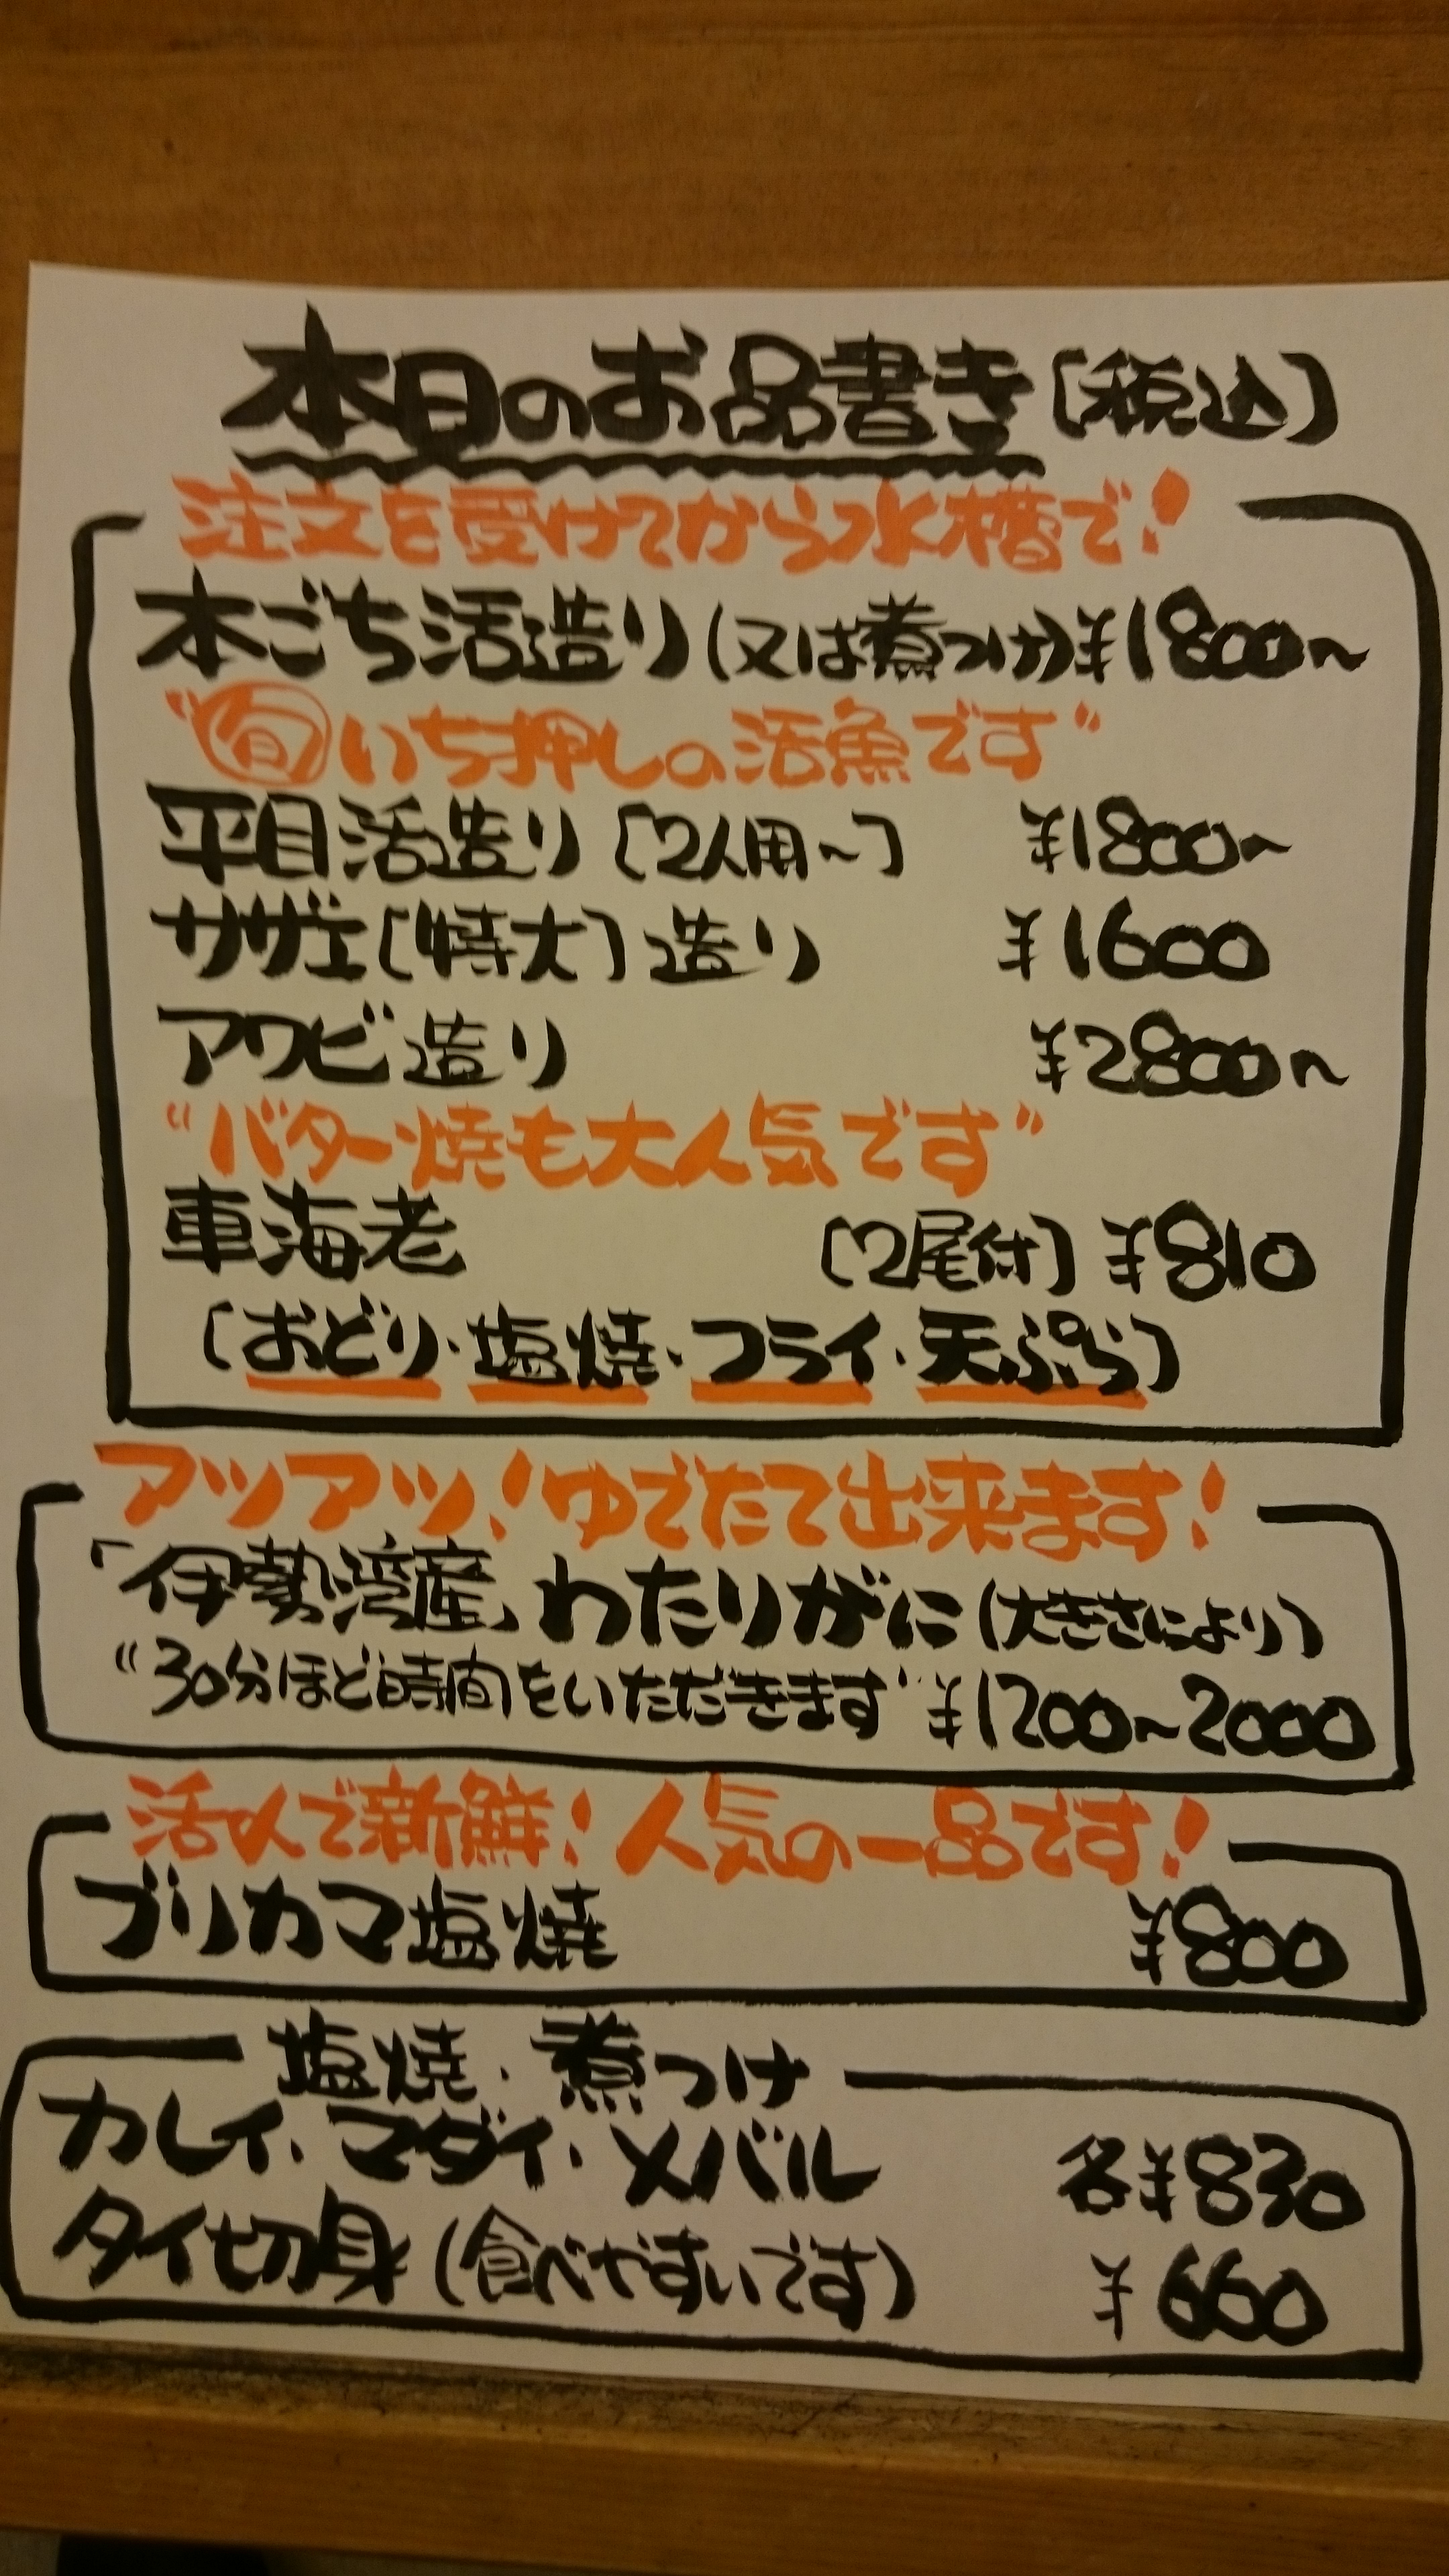 本日のお品書き〔税込〕
注文を受けてから水槽で!
本ごち活造り(又は煮つけ)¥1800~
“旬いち押しの活魚です”
平目活造り〔2人用~〕 ¥1800~
サザエ〔特大〕造り ¥1600
アワビ造り ¥2800~
“バター焼も大人気です”
車海老 〔2尾付〕¥810
〔おどり・塩焼・フライ・天ぷら〕
アツアツ!ゆでたて出来ます!
「伊勢湾産」わたりがに(大きさにより)
“30分ほど時間をいただきます” ¥1200~2000
活〆で新鮮!人気の一品です!
ブリカマ塩焼 ¥800
塩焼・煮つけ
カレイ・マダイ・メバル 各¥830
タイ切身(食べやすいです) ¥660